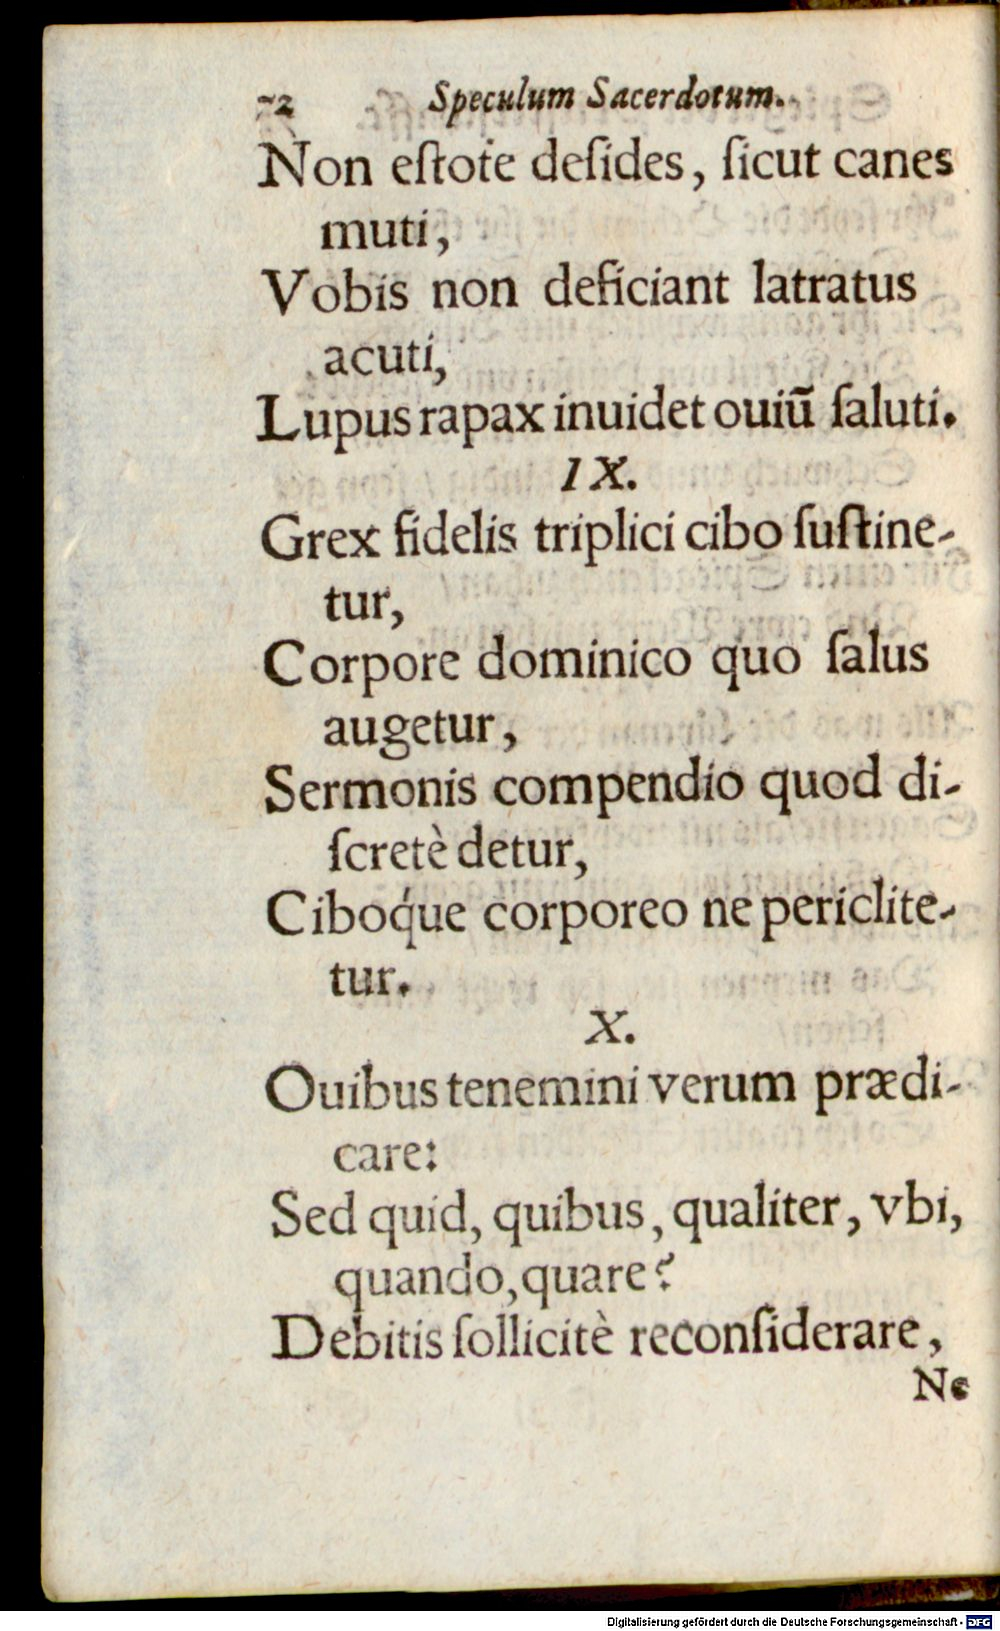 72 Speculum Sacerdotum.
Non eſtote deſides, ſicut canes
muti,
Vobis non deficiant latratus
acuti,
Lupus rapax inuidet ouiū ſaluti.
IX.
Grex fidelis triplici cibo ſuſtine-
tur,
Corpore dominico quo ſalus
augetur,
Sermonis compendio quod di-
ſcretè detur,
Ciboq́ue corporeo ne periclite-
tur.
X.
Ouibus tenemini verum prædi-
care:
Sed quid, quibus, qualiter, vbi,
quando, quare?
Debitis ſollicitè reconſiderare,
Ne
Digitalisierung gefördert durch die Deutsche Forschungsgemeinschaft - DFG